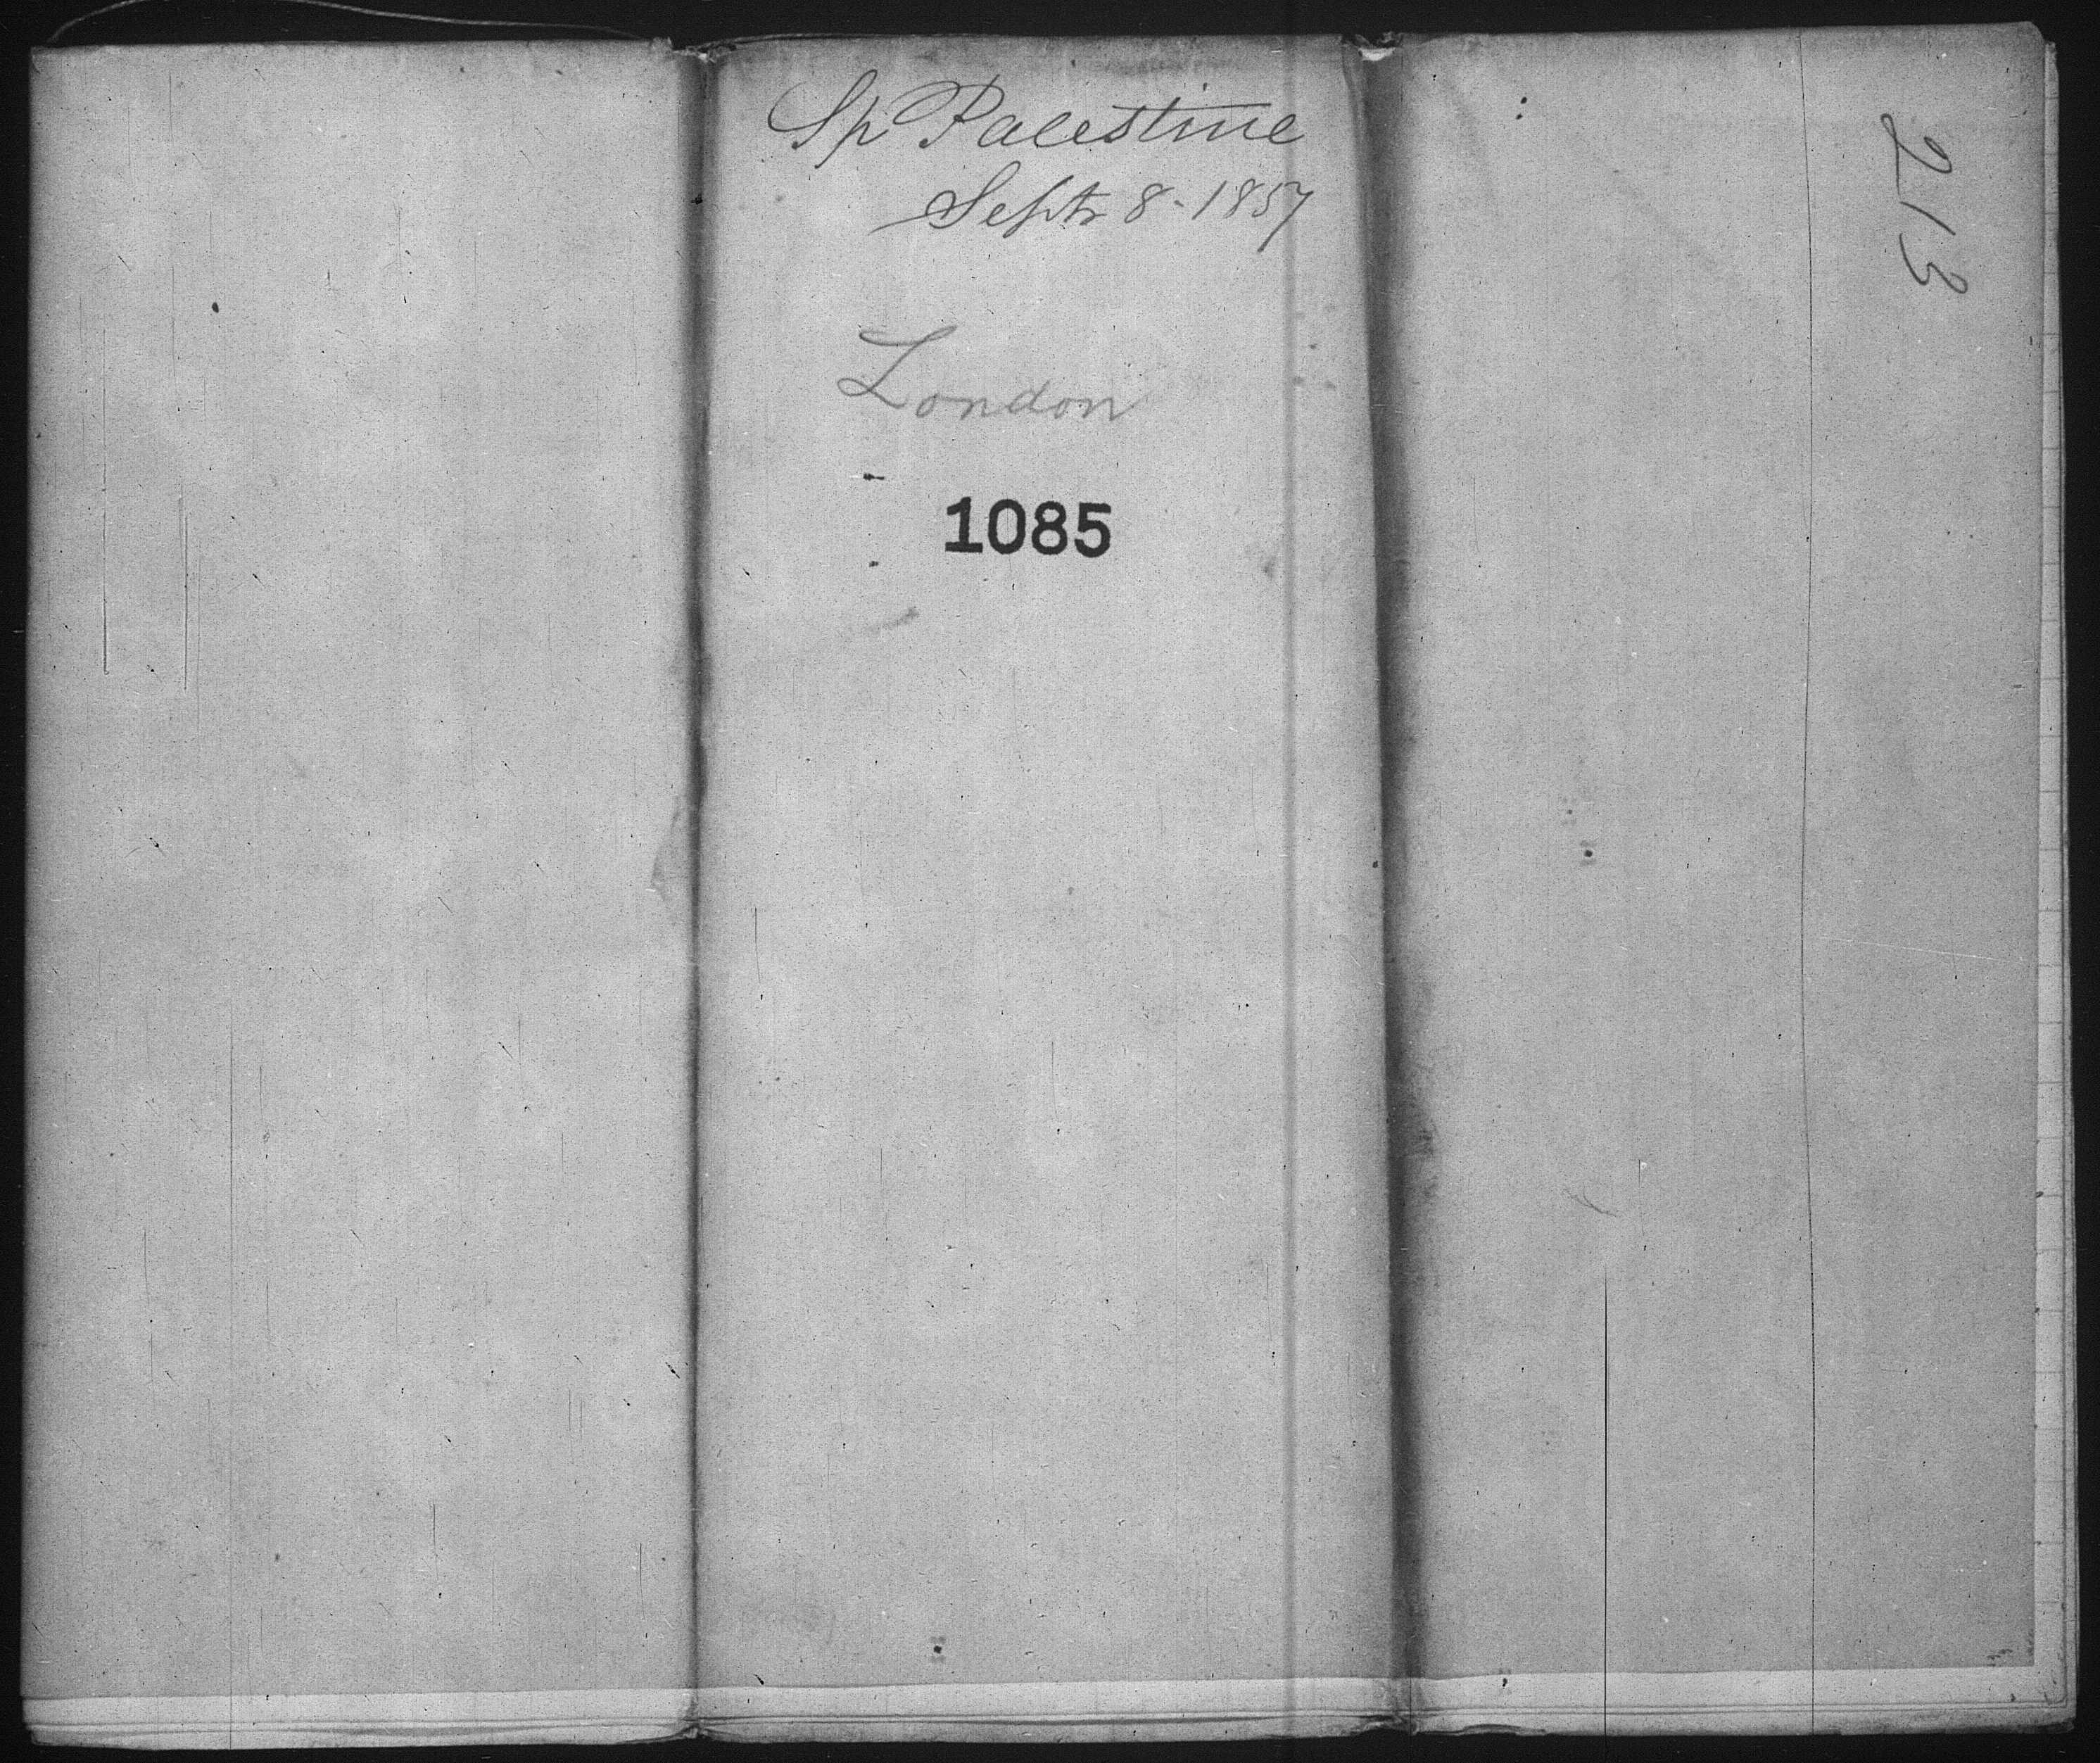 Sp Palestine
Septr 8 - 1857
London
1085
213